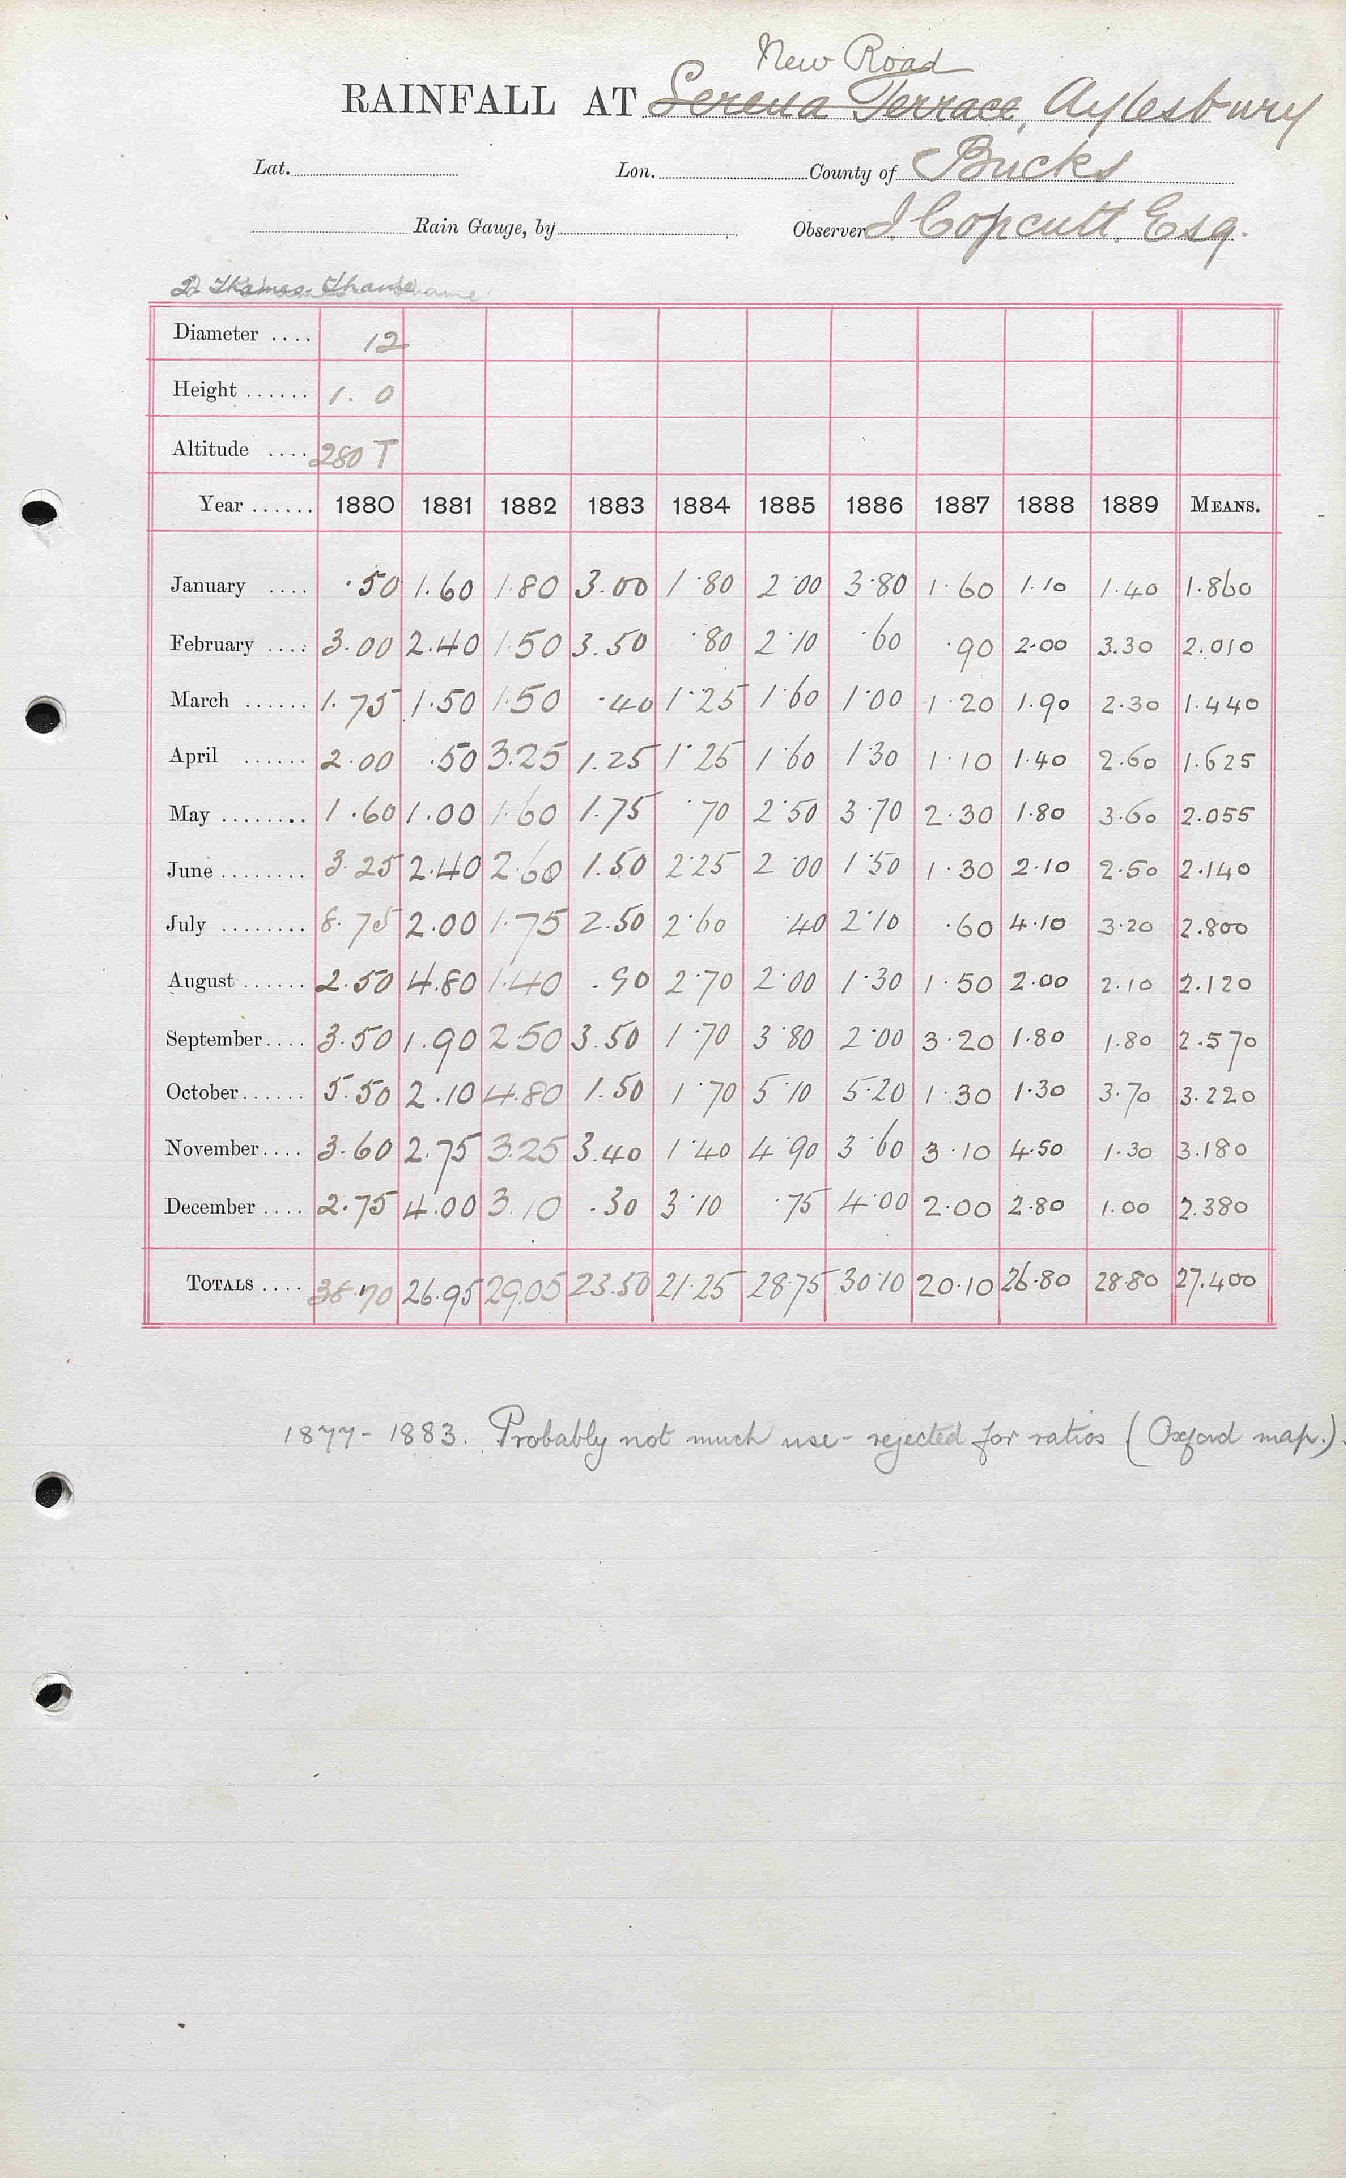 New Road
RAINFALL AT Serena Terrace, Aylesbury
Lat. Lon. County of Bucks
Rain Gauge, by Observer J Copcutt. Esq.
Thames
Diameter .... 12
Height ...... 1. 0
Altitude .... 280 T
Year ...... 1880 1881 1882 1883 1884 1885 1886 1887 1888 1889 MEANS.
January .... .50 1.60 1.80 3.00 1.80 2.00 3.80 1.60 1.10 1.40 1.860
February .... 3.00 2.40 1.50 3.50 .80 2.10 .60 .90 2.00 3.30 2.010
March ...... 1.75 1.50 1.50 .40 1.25 1.60 1.00 1.20 1.90 2.30 1.440
April ...... 2.00 .50 3.25 1.25 1.25 1.60 1.30 1.10 1.40 2.60 1.625
May ........ 1.60 1.00 1.60 1.75 .70 2.50 3.70 2.30 1.80 3.60 2.055
June ........ 3.25 2.40 2.60 1.50 2.25 2.00 1.50 1.30 2.10 2.50 2.140
July ........ 8.75 2.00 1.75 2.50 2.60 .40 2.10 .60 4.10 3.20 2.800
August ...... 2.50 4.80 1.40 .90 2.70 2.00 1.30 1.50 2.00 2.10 2.120
September .... 3.50 1.90 2.50 3.50 1.70 3.80 2.00 3.20 1.80 1.80 2.570
October ...... 5.50 2.10 4.80 1.50 1.70 5.10 5.20 1.30 1.30 3.70 3.220
November .... 3.60 2.75 3.25 3.40 1.40 4.90 3.60 3.10 4.50 1.30 3.180
December .... 2.75 4.00 3.10 .30 3.10 .75 4.00 2.00 2.80 1.00 2.380
TOTALS .... 38.70 26.95 29.05 23.50 21.25 28.75 30.10 20.10 26.80 28.80 27.400
1877 - 1883. Probably not much use - rejected for ratios (Oxford map.).